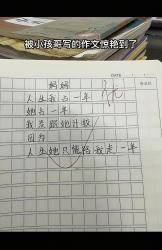 被小孩哥写的作文惊艳到了
DATE
妈妈
优
人生我占一年
她占一年
我要跟她计较
因为
人生她只能陪我走一年